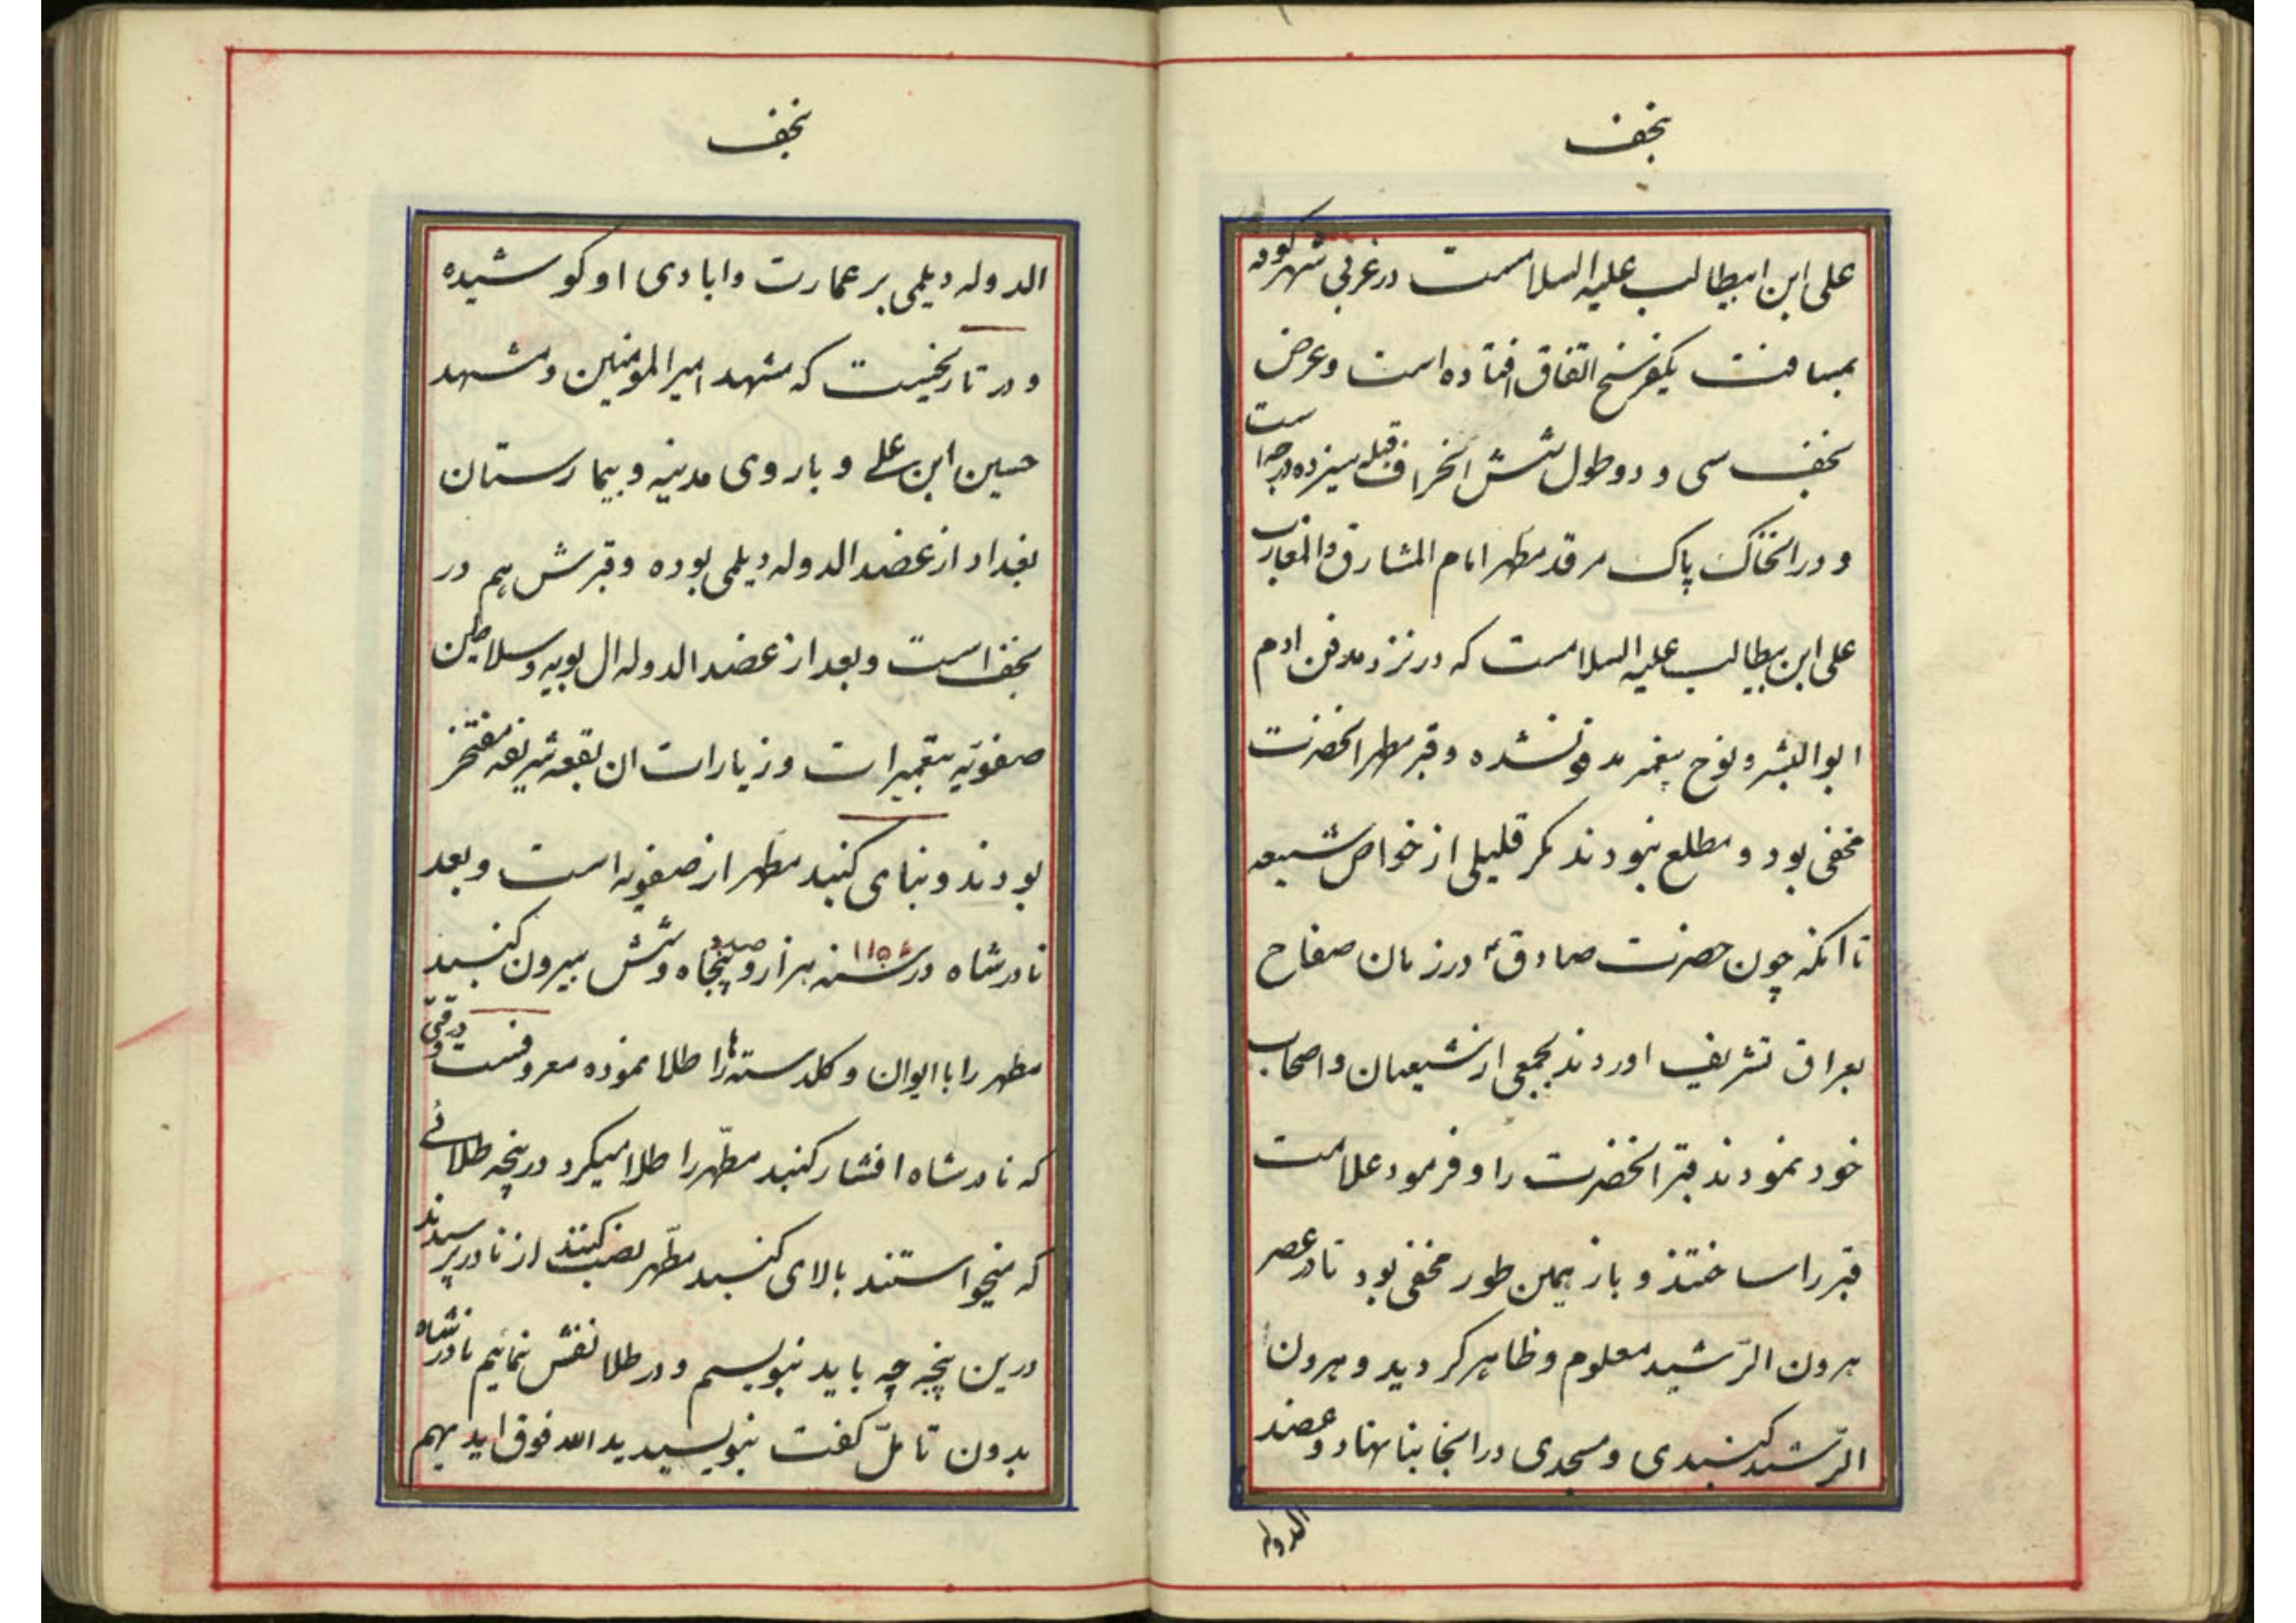 نجف
علی ابن ابیطالب علیه السلامست در غربی شهر کوفه
بمسافت یکفرسخ اتفاق افتاده است و عرض
نجف سی و دو و طول شش انحراف قبله سیزده درجه است
و در انخاک پاک مرقد مطهر امام المشارق والمغارب
علی ابن بیطالب علیه السلامست که در نزد مدفن ادم
ابوالبشر و نوح پیغمبر مدفون شده و قبر مطهر انحضرت
مخفی بود و مطلع نبودند مکر قلیلی از خواص شیعه
تا انکه چون حضرت صادق ع در زمان صفاح
بعراق تشریف اوردند بجمعی از شیعیان و اصحاب
خود نمودند قبر انحضرت را و فرمود علامت
قبر را ساختند و باز بهمین طور مخفی بود تا در عصر
هرون الرّشید معلوم و ظاهر کردید و هرون
الرّشید کنبدی و مسجدی در انجا بنا نهاد و عضد
الدوله
نجف
الدوله دیلمی بر عمارت و ابادی او کوشیده
و در تاریخیست که مشهد امیرالمومنین و مشهد
حسین ابن علی و باروی مدینه و بیمارستان
بغداد از عضد الدوله دیلمی بوده و قبرش هم در
نجف است و بعد از عضد الدوله ال بویه و سلاطین
صفویّه بتعمیرات و زیارات ان بقعه شریفه مفتخر
بودند و بنای کنبد مطهر از صفویه است و بعد
نادرشاه در سنه ۱۱۵۶ هزار و صد و پنجاه و شش بیرون کنبد
مطهر را با ایوان و کلدسته ها را طلا نموده معروفست در وقتی
که نادرشاه افشار کنبد مطهّر را طلا میکرد در پنجه طلائی
که میخواستند بالای کنبد مطهّر نصب کنند از نادر پرسیدند
درین پنجه چه باید بنویسم و در طلا نقش نمائیم نادرشاه
بدون تامّل کفت بنویسید ید الله فوق ایدیهم